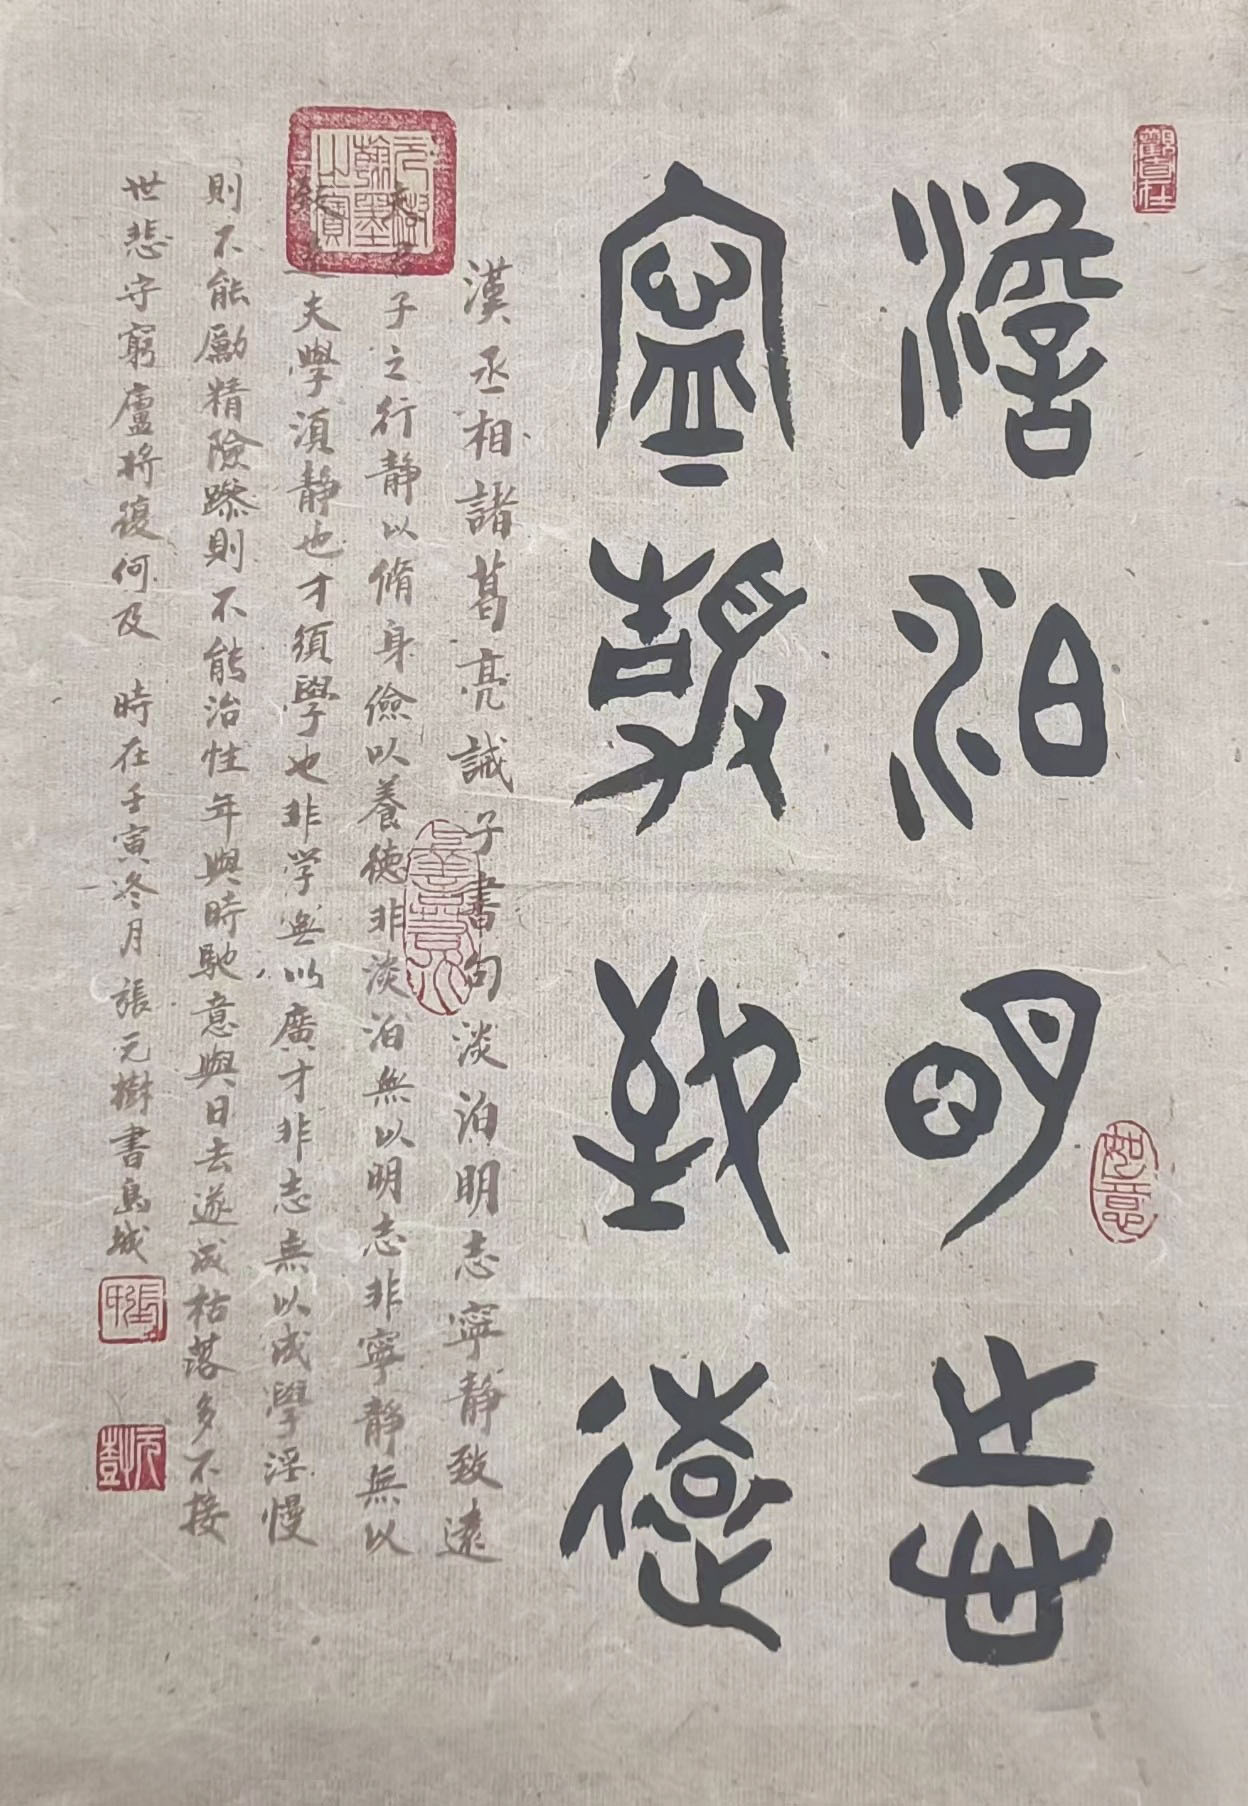 澹泊明志
寧静致遠
漢丞相諸葛亮誡子書句淡泊明志寧静致遠
夫君子之行静以脩身儉以養德非淡泊無以明志非寧静無以
致遠夫學須静也才須學也非学無以廣才非志無以成學淫慢
則不能勵精險躁則不能治性年與時馳意與日去遂成枯落多不接
世悲守窮廬將復何及 時在壬寅冬月張元樹書島城
如意
元樹翰墨之寶
張
元樹